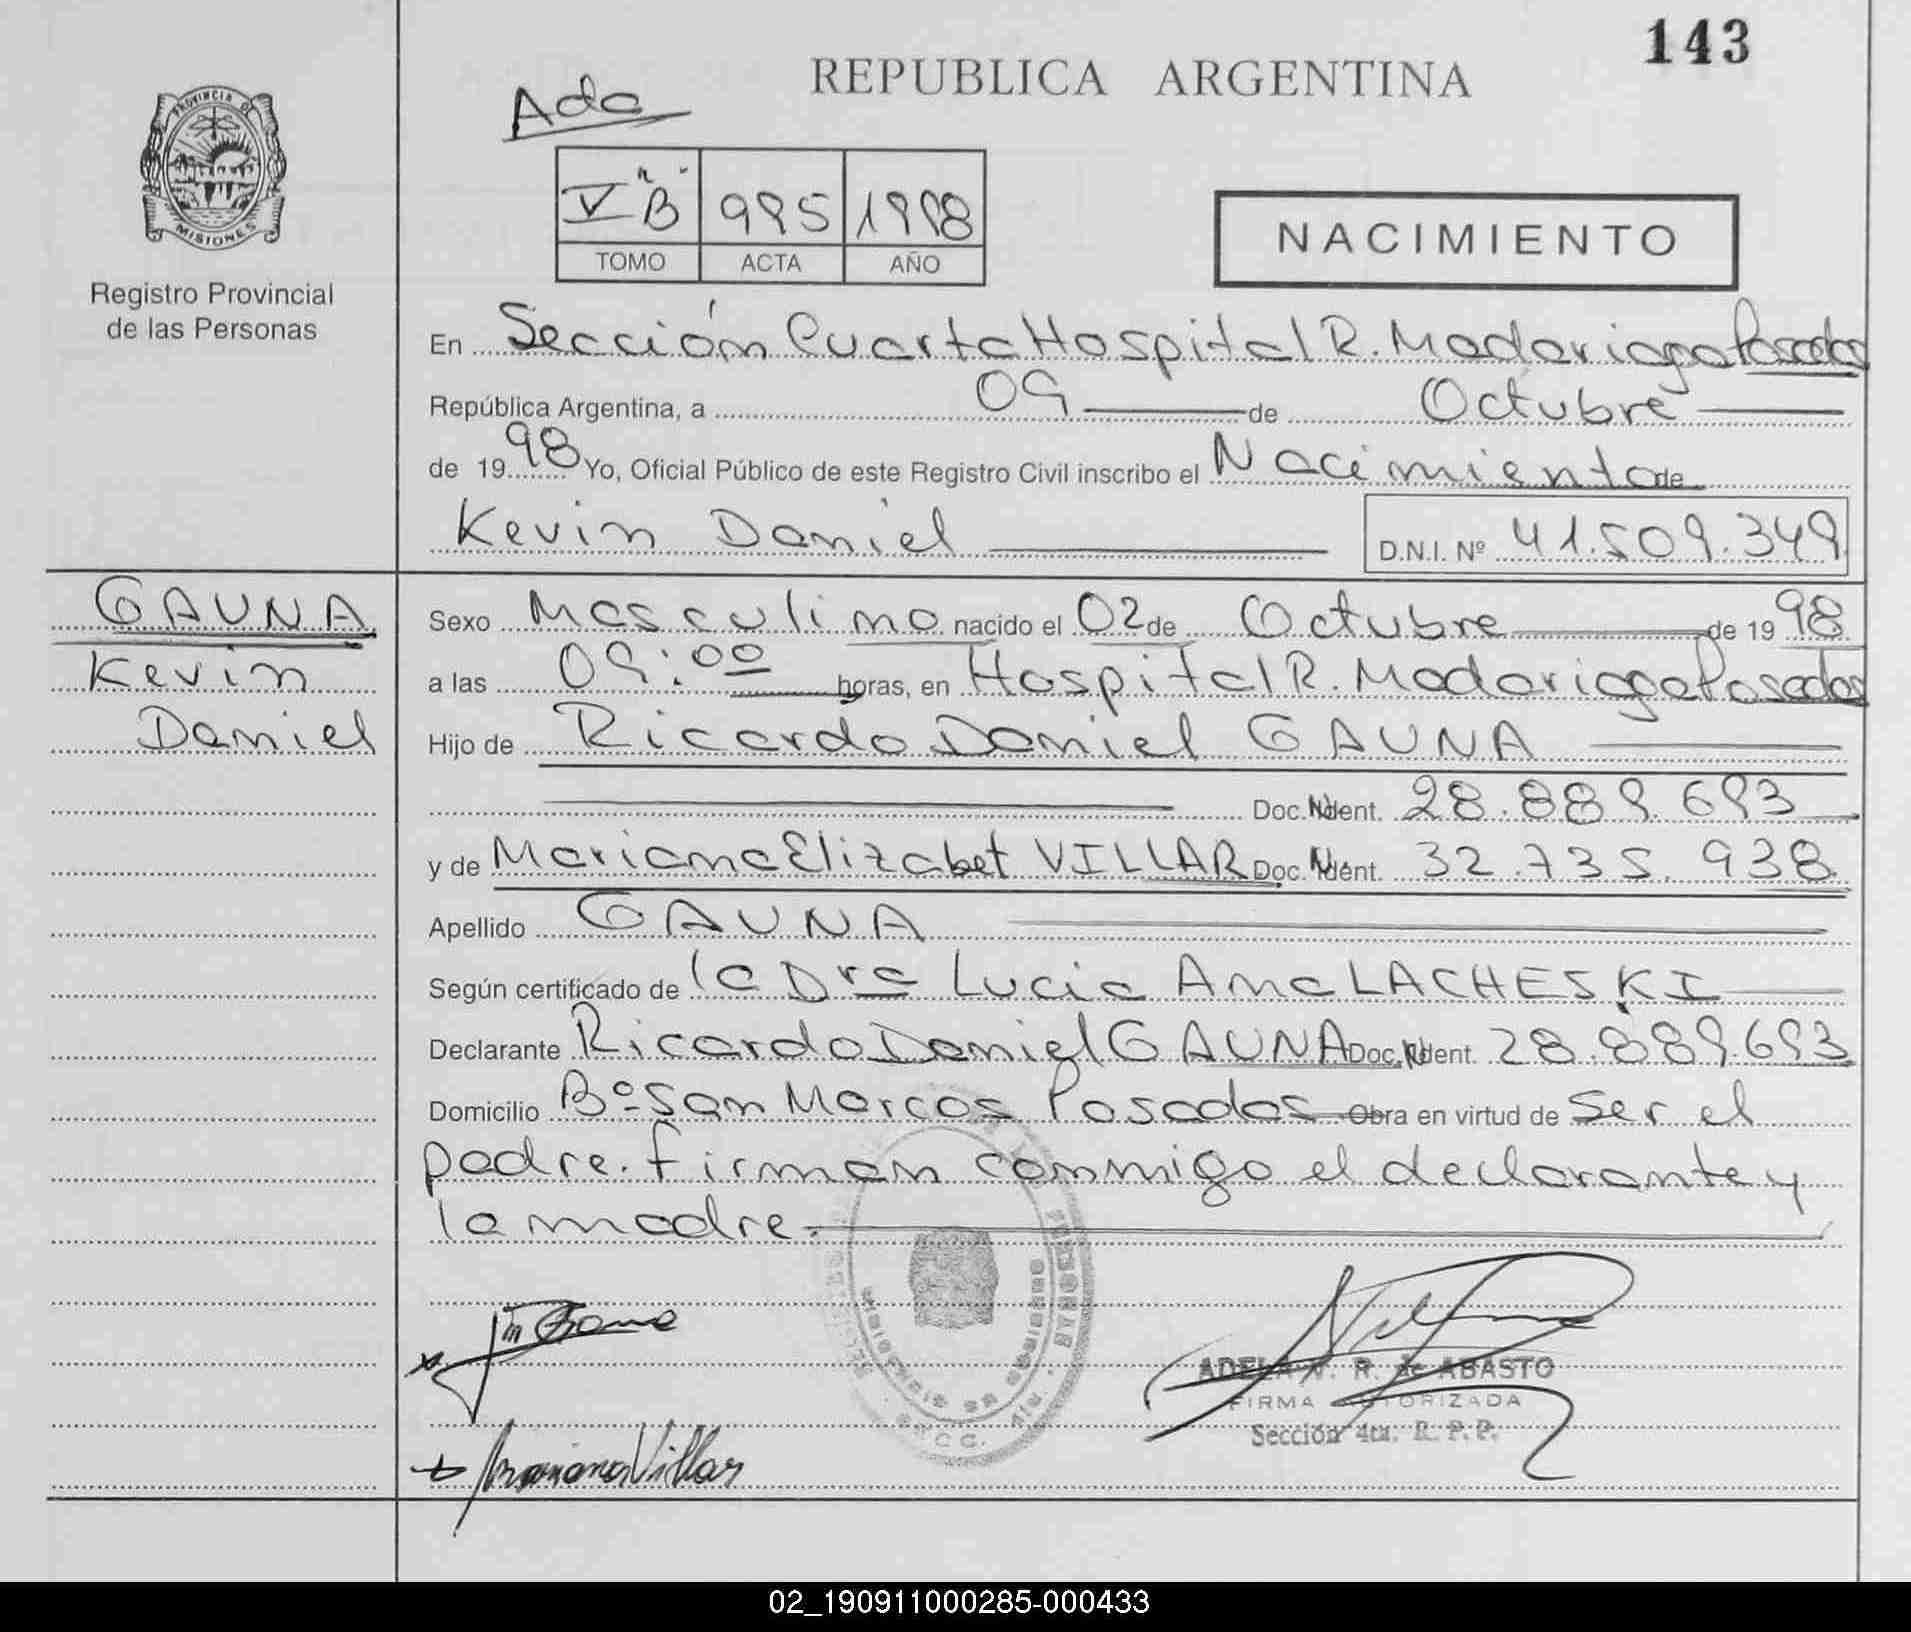 143
REPUBLICA ARGENTINA
Ada
PROVINCIA DE
MISIONES
V "B" 995 1998
TOMO ACTA AÑO
NACIMIENTO
Registro Provincial
de las Personas
En Sección Cuarta Hospital R. Madariaga Posadas
República Argentina, a 09 de Octubre
de 1998 Yo, Oficial Público de este Registro Civil inscribo el Nacimiento de
Kevin Daniel D.N.I. Nº 41.509.349
GAUNA
Kevin
Daniel
Sexo Masculino nacido el 02 de Octubre de 1998
a las 09:00 horas, en Hospital R. Madariaga Posadas
Hijo de Ricardo Daniel GAUNA
Doc. Ident. 28.889.693
y de Mariana Elizabet VILLAR Doc. Ident. 32.735.938
Apellido GAUNA
Según certificado de la Dra Lucia Ana LACHESKI
Declarante Ricardo Daniel GAUNA Doc. Ident. 28.889.693
Domicilio Bº San Marcos Posadas Obra en virtud de Ser el
padre. Firman conmigo el declarante y
la madre.
ADELA N. R. de ABASTO
FIRMA AUTORIZADA
Sección 4ta. R. P. P.
Mariana Villar
02_190911000285-000433